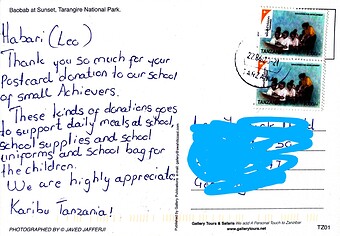 Baobab at Sunset, Tarangire National Park.
Habari (Leo)
Thank you so much for your
Postcard donation to our school
of small Achievers.
These kinds of donations goes
to support daily meals at school,
school supplies and school
uniforms and school bag for
the children.
We are highly appreciate
Karibu Tanzania!
PHOTOGRAPHED BY © JAVED JAFFERJI
Gallery Tours & Safaris We add A Personal Touch to Zanzibar
www.gallerytours.net
TZ01